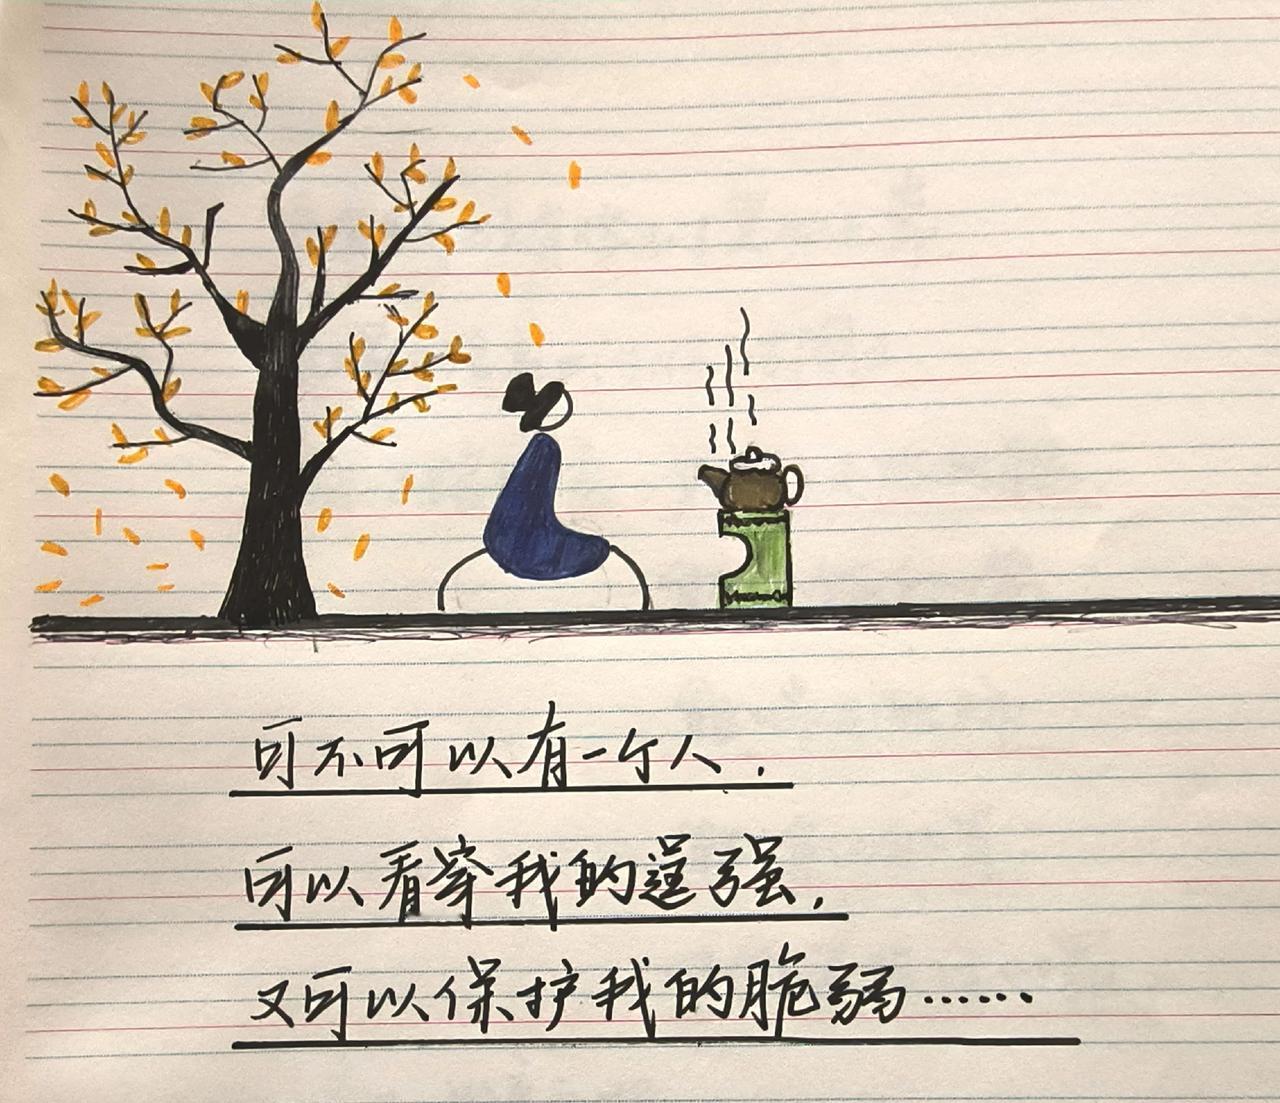 可不可以有一个人.
可以看穿我的逞强.
又可以保护我的脆弱……